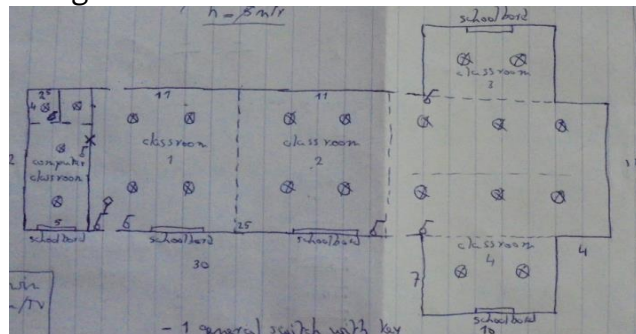 h = 5 mtr
schoolbord
classroom
3
25
11
11
4
classroom
1
classroom
2
computer
classroom
5
6
25
schoolbord
schoolbord
schoolbord
30
classroom
4
4
7
schoolbord
10
/TV
- 1 general switch with key